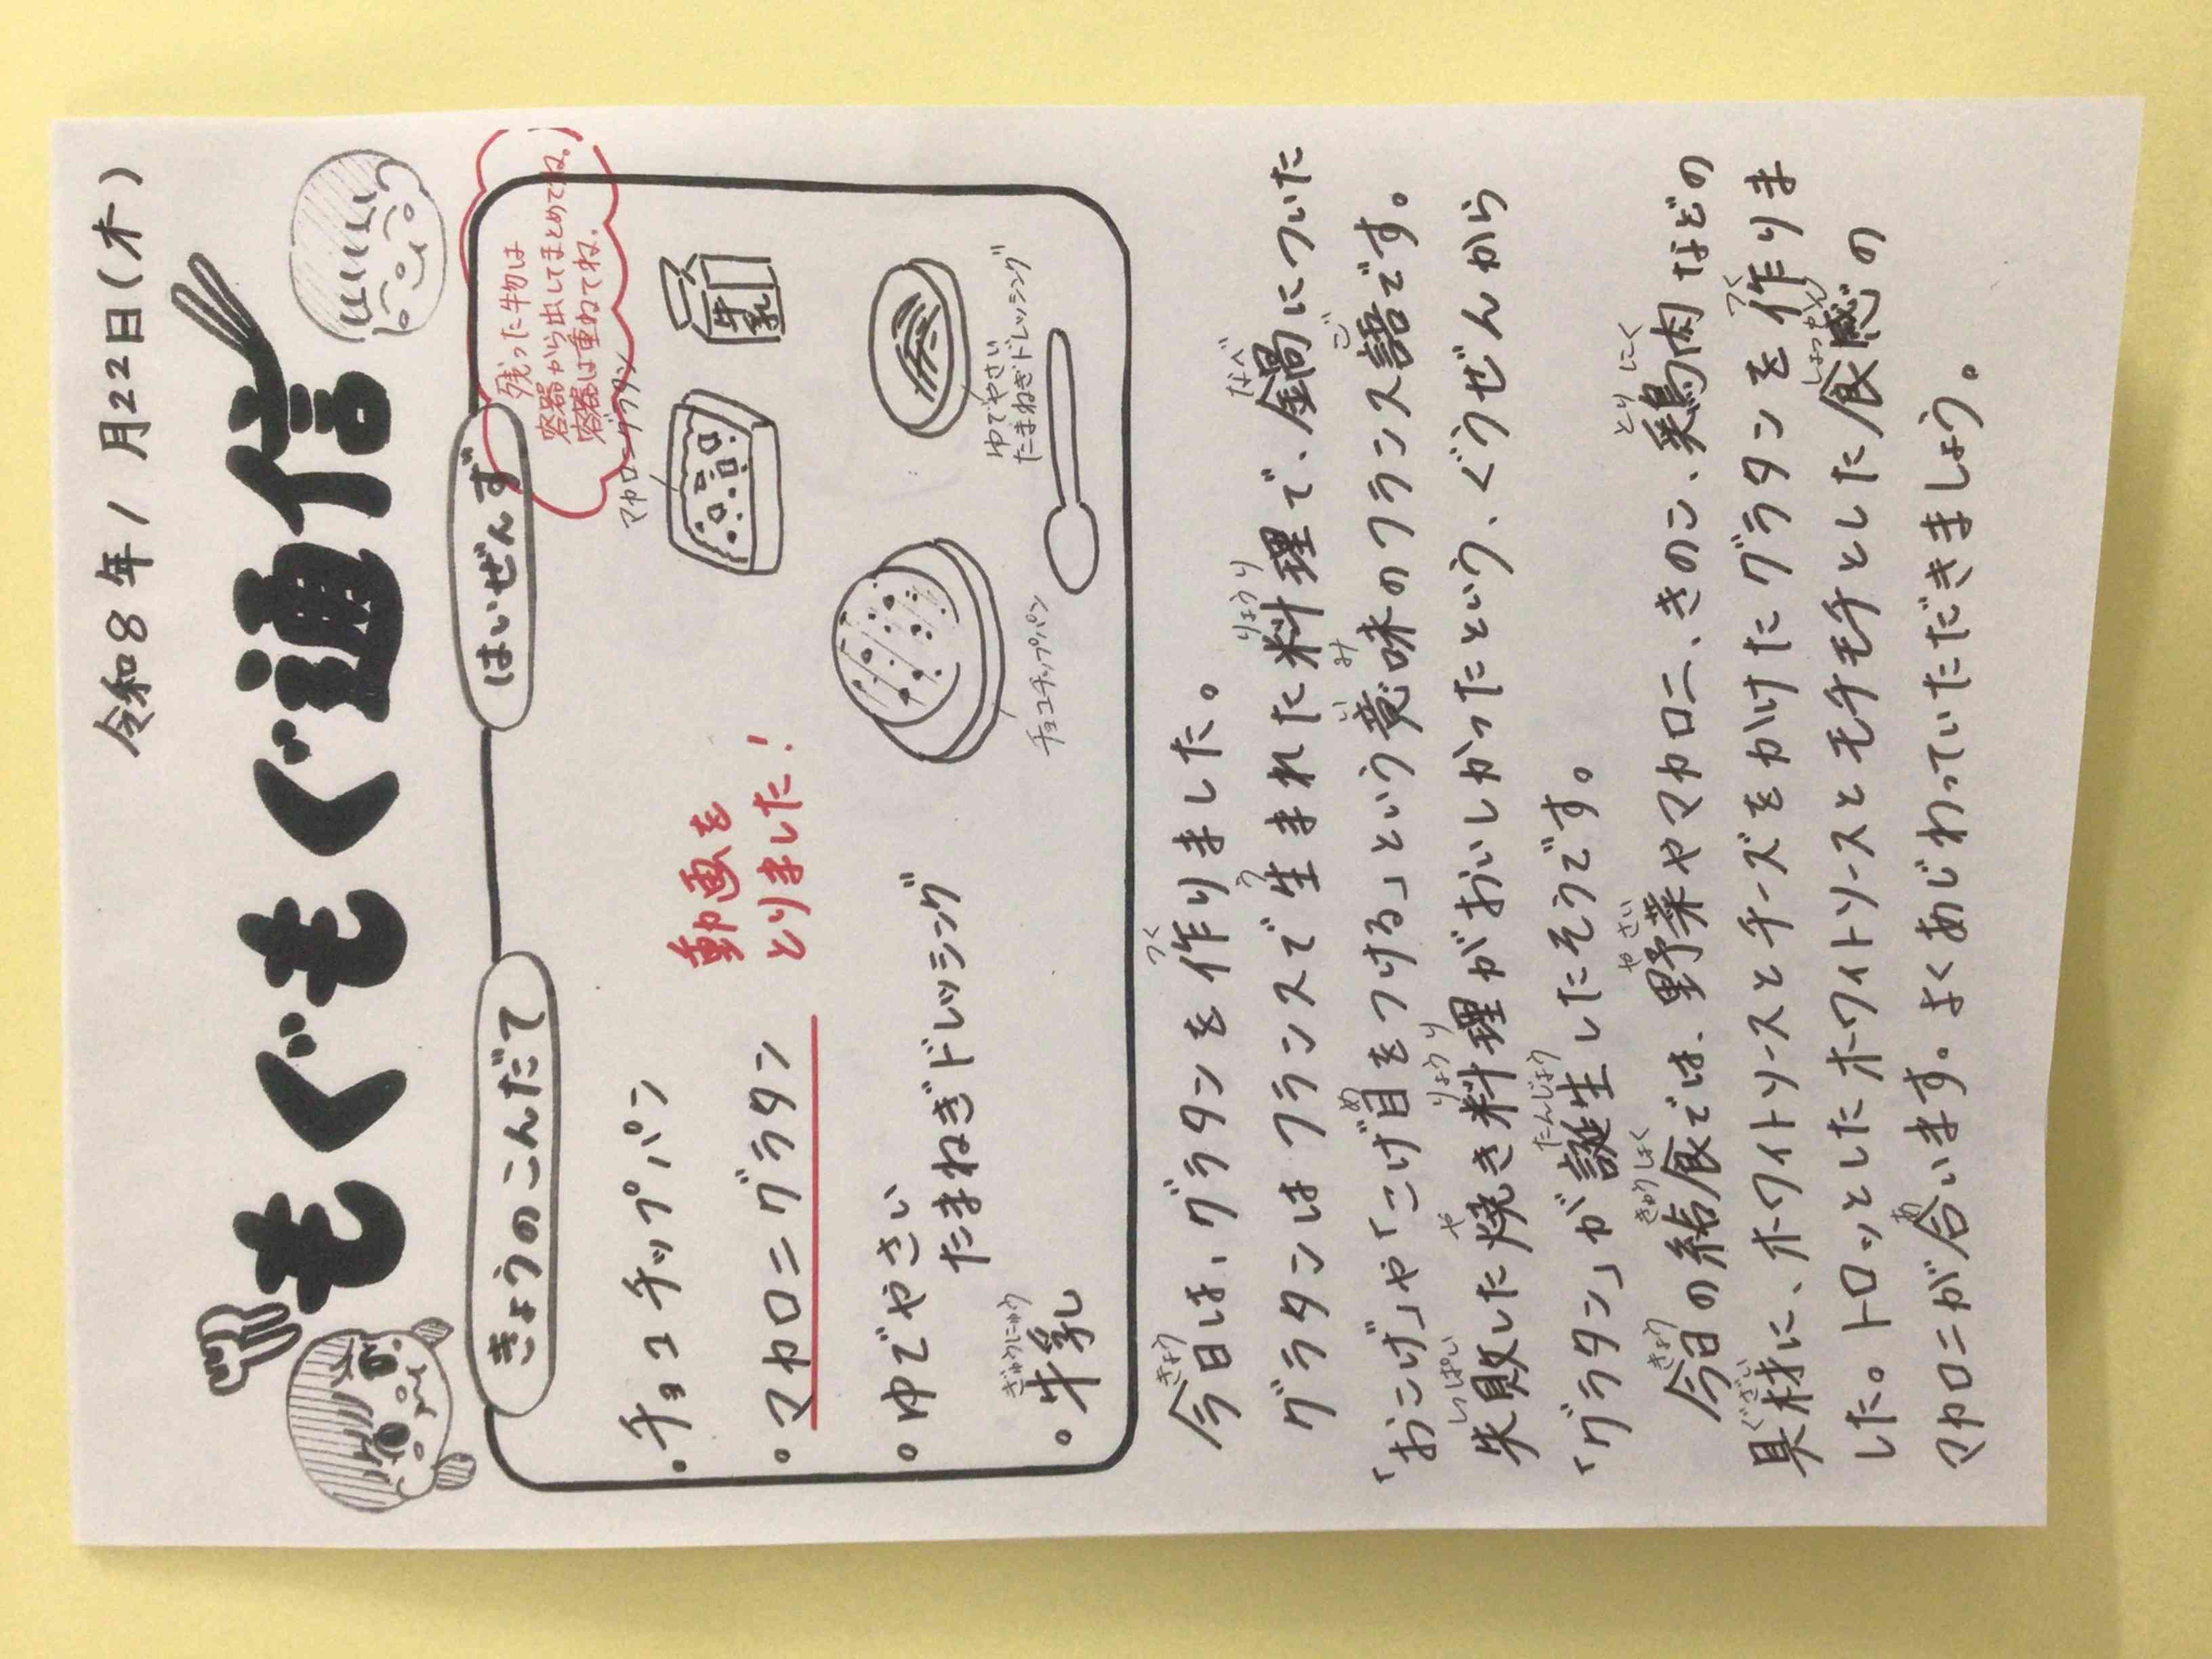 令和8年1月22日(木)
もぐもぐ通信
きょうのこんだて
・チョコチップパン
・マカロニグラタン
・ゆでやさい
たまねぎドレッシング
・牛乳
ぎゅうにゅう
動画を
とりました!
はいぜんず
残った牛物は
容器から出してまとめてね。
容器は重ねてね。
マカロニグラタン
牛乳
チョコチップパン
ゆでやさい
たまねぎドレッシング
きょう つく
今日は、グラタンを作りました。
う りょうり なべ
グラタンはフランスで生まれた料理で、鍋についた
め いみ ご
「おこげ」や「こげ目をつける」という意味のフランス語です。
しっぱい や りょうり
失敗した焼き料理がおいしかったという、ぐうぜんから
たんじょう
「グラタン」が誕生したそうです。
きょう きゅうしょく やさい とりにく
今日の給食では、野菜やマカロニ、きのこ、鶏肉などの
ぐざい つく
具材に、ホワイトソースとチーズをかけたグラタンを作りま
しょっかん
した。トロッとしたホワイトソースとモチモチとした食感の
あ
マカロニが合います。よくあじわっていただきましょう。